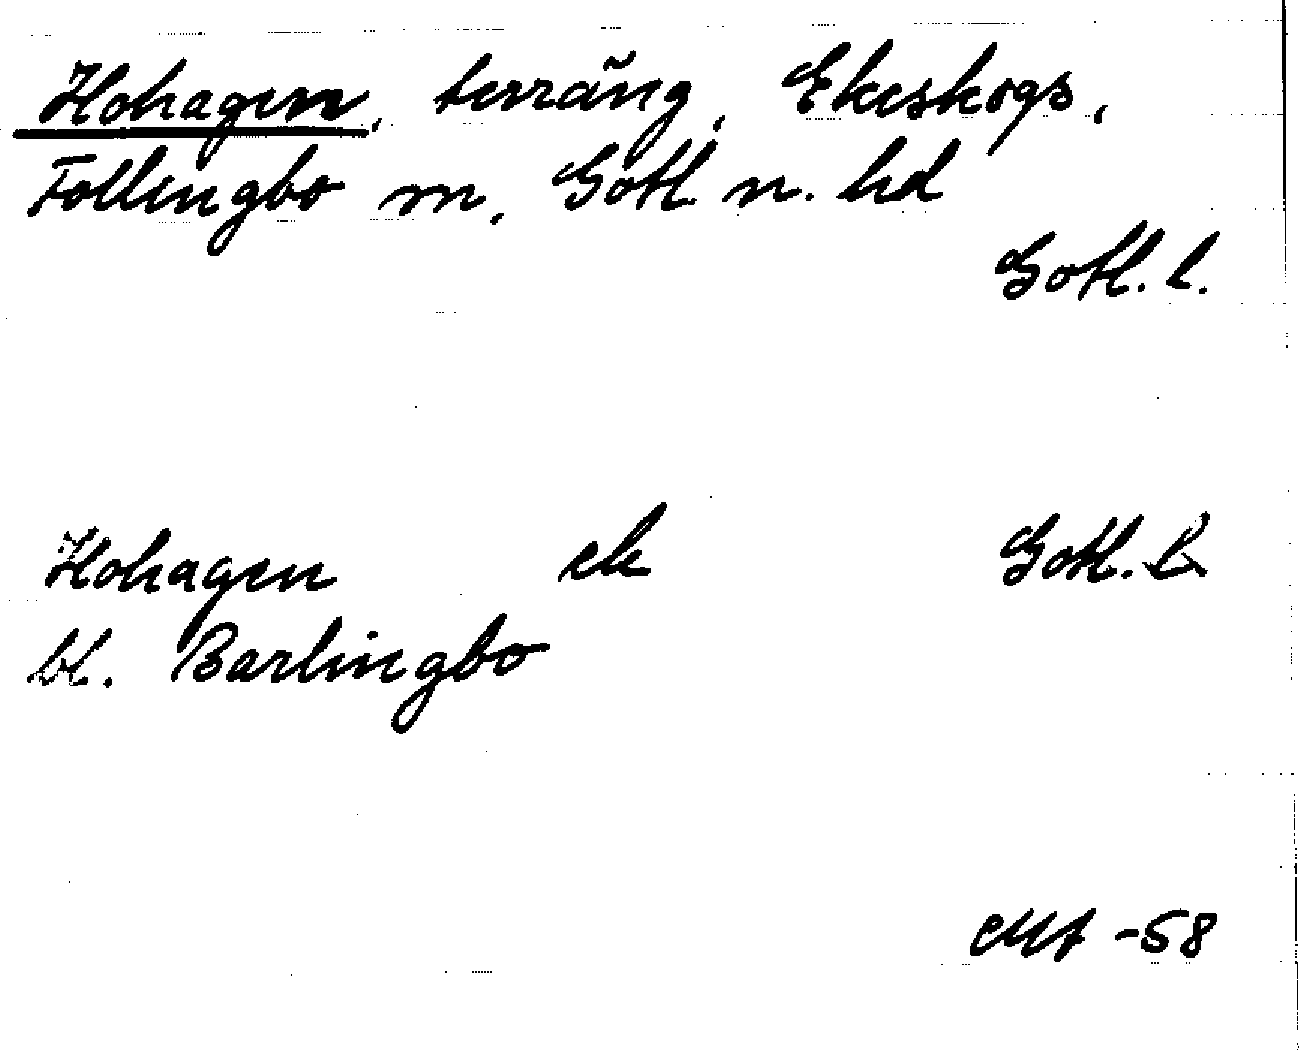 Hohagen, terräng, Ekeskogs,
Follingbo sn, Gotl. n. hd
Gotl. l.
Hohagen ek Gotl. l.
bl. Barlingbo
-58